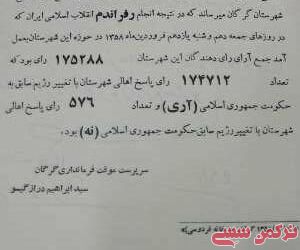 شهرستان گرگان میرساند که در نتیجه انجام رفراندم انقلاب اسلامی ایران که
در روزهای جمعه دهم و شنبه یازدهم فروردین‌ماه ۱۳۵۸ در حوزه این شهرستان بعمل
آمد جمع آرای رای دهندگان این شهرستان ۱۷۵۲۸۸ رای بود که
تعداد ۱۷۴۷۱۲ رای پاسخ اهالی شهرستان با تغییر رژیم سابق به
حکومت جمهوری اسلامی (آری) و تعداد ۵۷۶ رای پاسخ اهالی
شهرستان با تغییر رژیم سابق حکومت جمهوری اسلامی (نه) بود.
سرپرست موقت فرمانداری گرگان
سید ابراهیم درازگیسو
ترکمن سسی
فردوسی)»